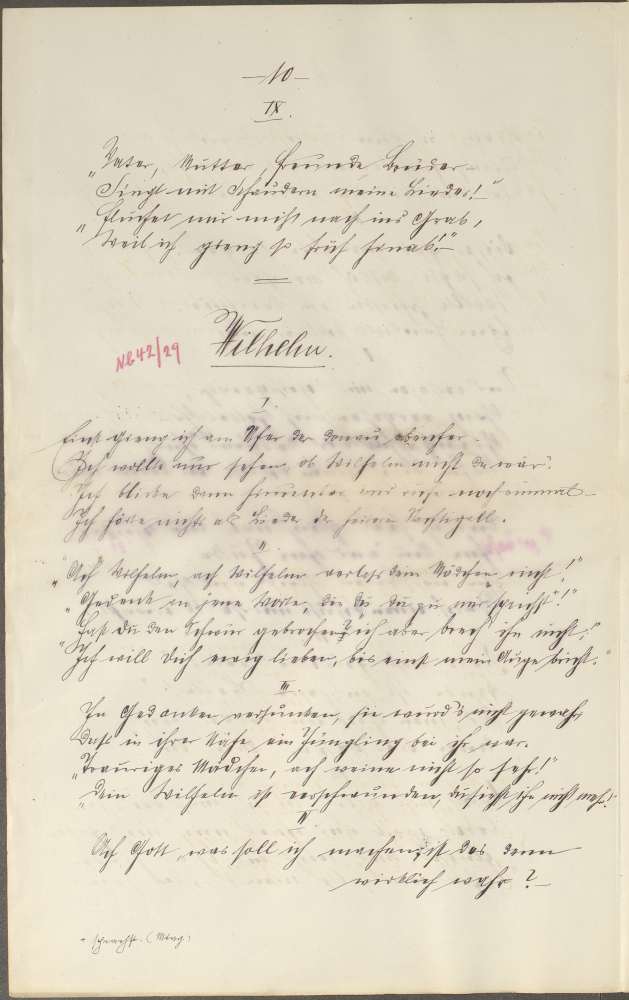 —10—
IX.
„Vater, Mutter, Freunde, Brüder –
Singt mit Schaudern meine Lieder! –
„Fluchet mir nicht nach ins Grab,
Weil ich gieng so früh hinab!" –
Wilhelm.
N642/29
I.
Einst gieng ich am Ufer der Donau
Ich wollte nur sehen, ob Wilhelm nicht da wär'.
Ich blickte dann und rufe noch einmal –
Ich höre nichts als Lieder der Nachtigall.
II.
„Ach Wilhelm, ach Wilhelm verlass dein Mädchen nicht!"
„Gedenk an jene Worte, die du zu mir sprichst*!"
„Hast du den Schwur gebrochen? ich aber brech' ihn nicht."
„Ich will dich ewig lieben, bis einst mein Auge bricht."
III.
In Gedanken versunken, sie wurd's nicht gewahr
Dass in ihrer Nähe ein Jüngling bei ihr war.
„Trauriges Mädchen, ach weine nicht so sehr!"
„Dein Wilhelm ist verschwunden, du siehst ihn nicht mehr!"
IV.
Ach Gott, was soll ich machen, ist das denn
wirklich wahr? –
* sprachst. (Mtvg.)